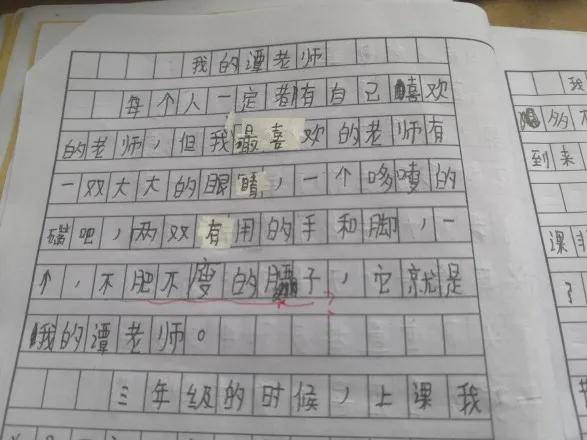 我的潭老师
每个人一定都有自己嘻欢
的老师，但我最喜欢的老师有
一双大大的眼睛，一个哆嗦的
嘴吧，两双有用的手和脚，一
个，不肥不瘦的肚子，它就是
我的潭老师。
三年级的时候，上课我
我
多不
到来
课